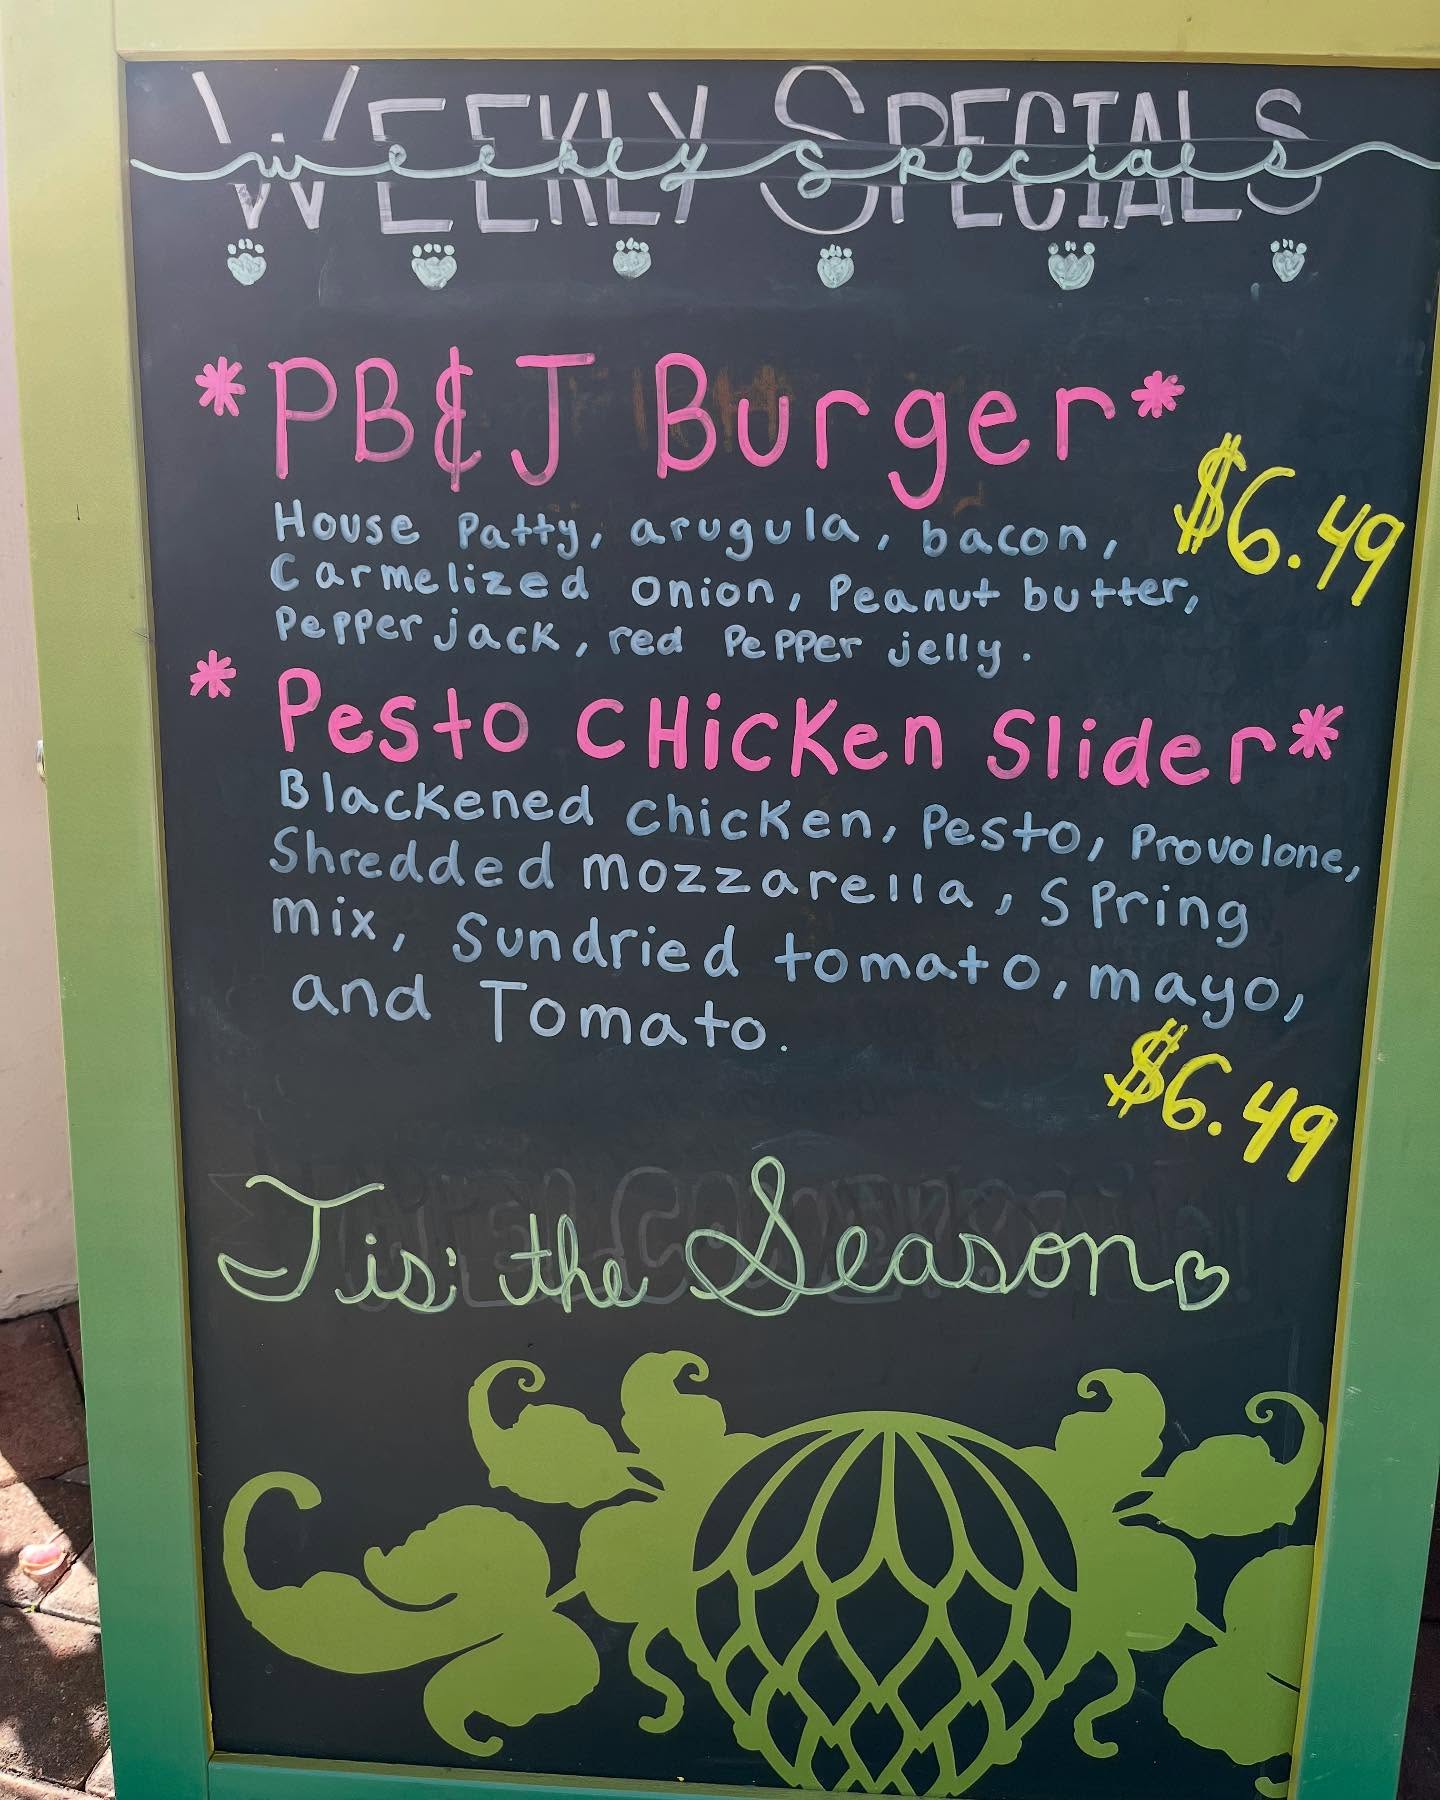 WEEKLY SPECIALS
weekly specials
*PB&J Burger*
$6.49
House Patty, arugula, bacon,
Carmelized onion, Peanut butter,
Pepper jack, red Pepper jelly.
* Pesto CHicKen Slider*
BlacKened chicKen, Pesto, Provolone,
Shredded mozzarella, SPring
mix, Sundried tomato, mayo,
and Tomato.
$6.49
Tis' the Season